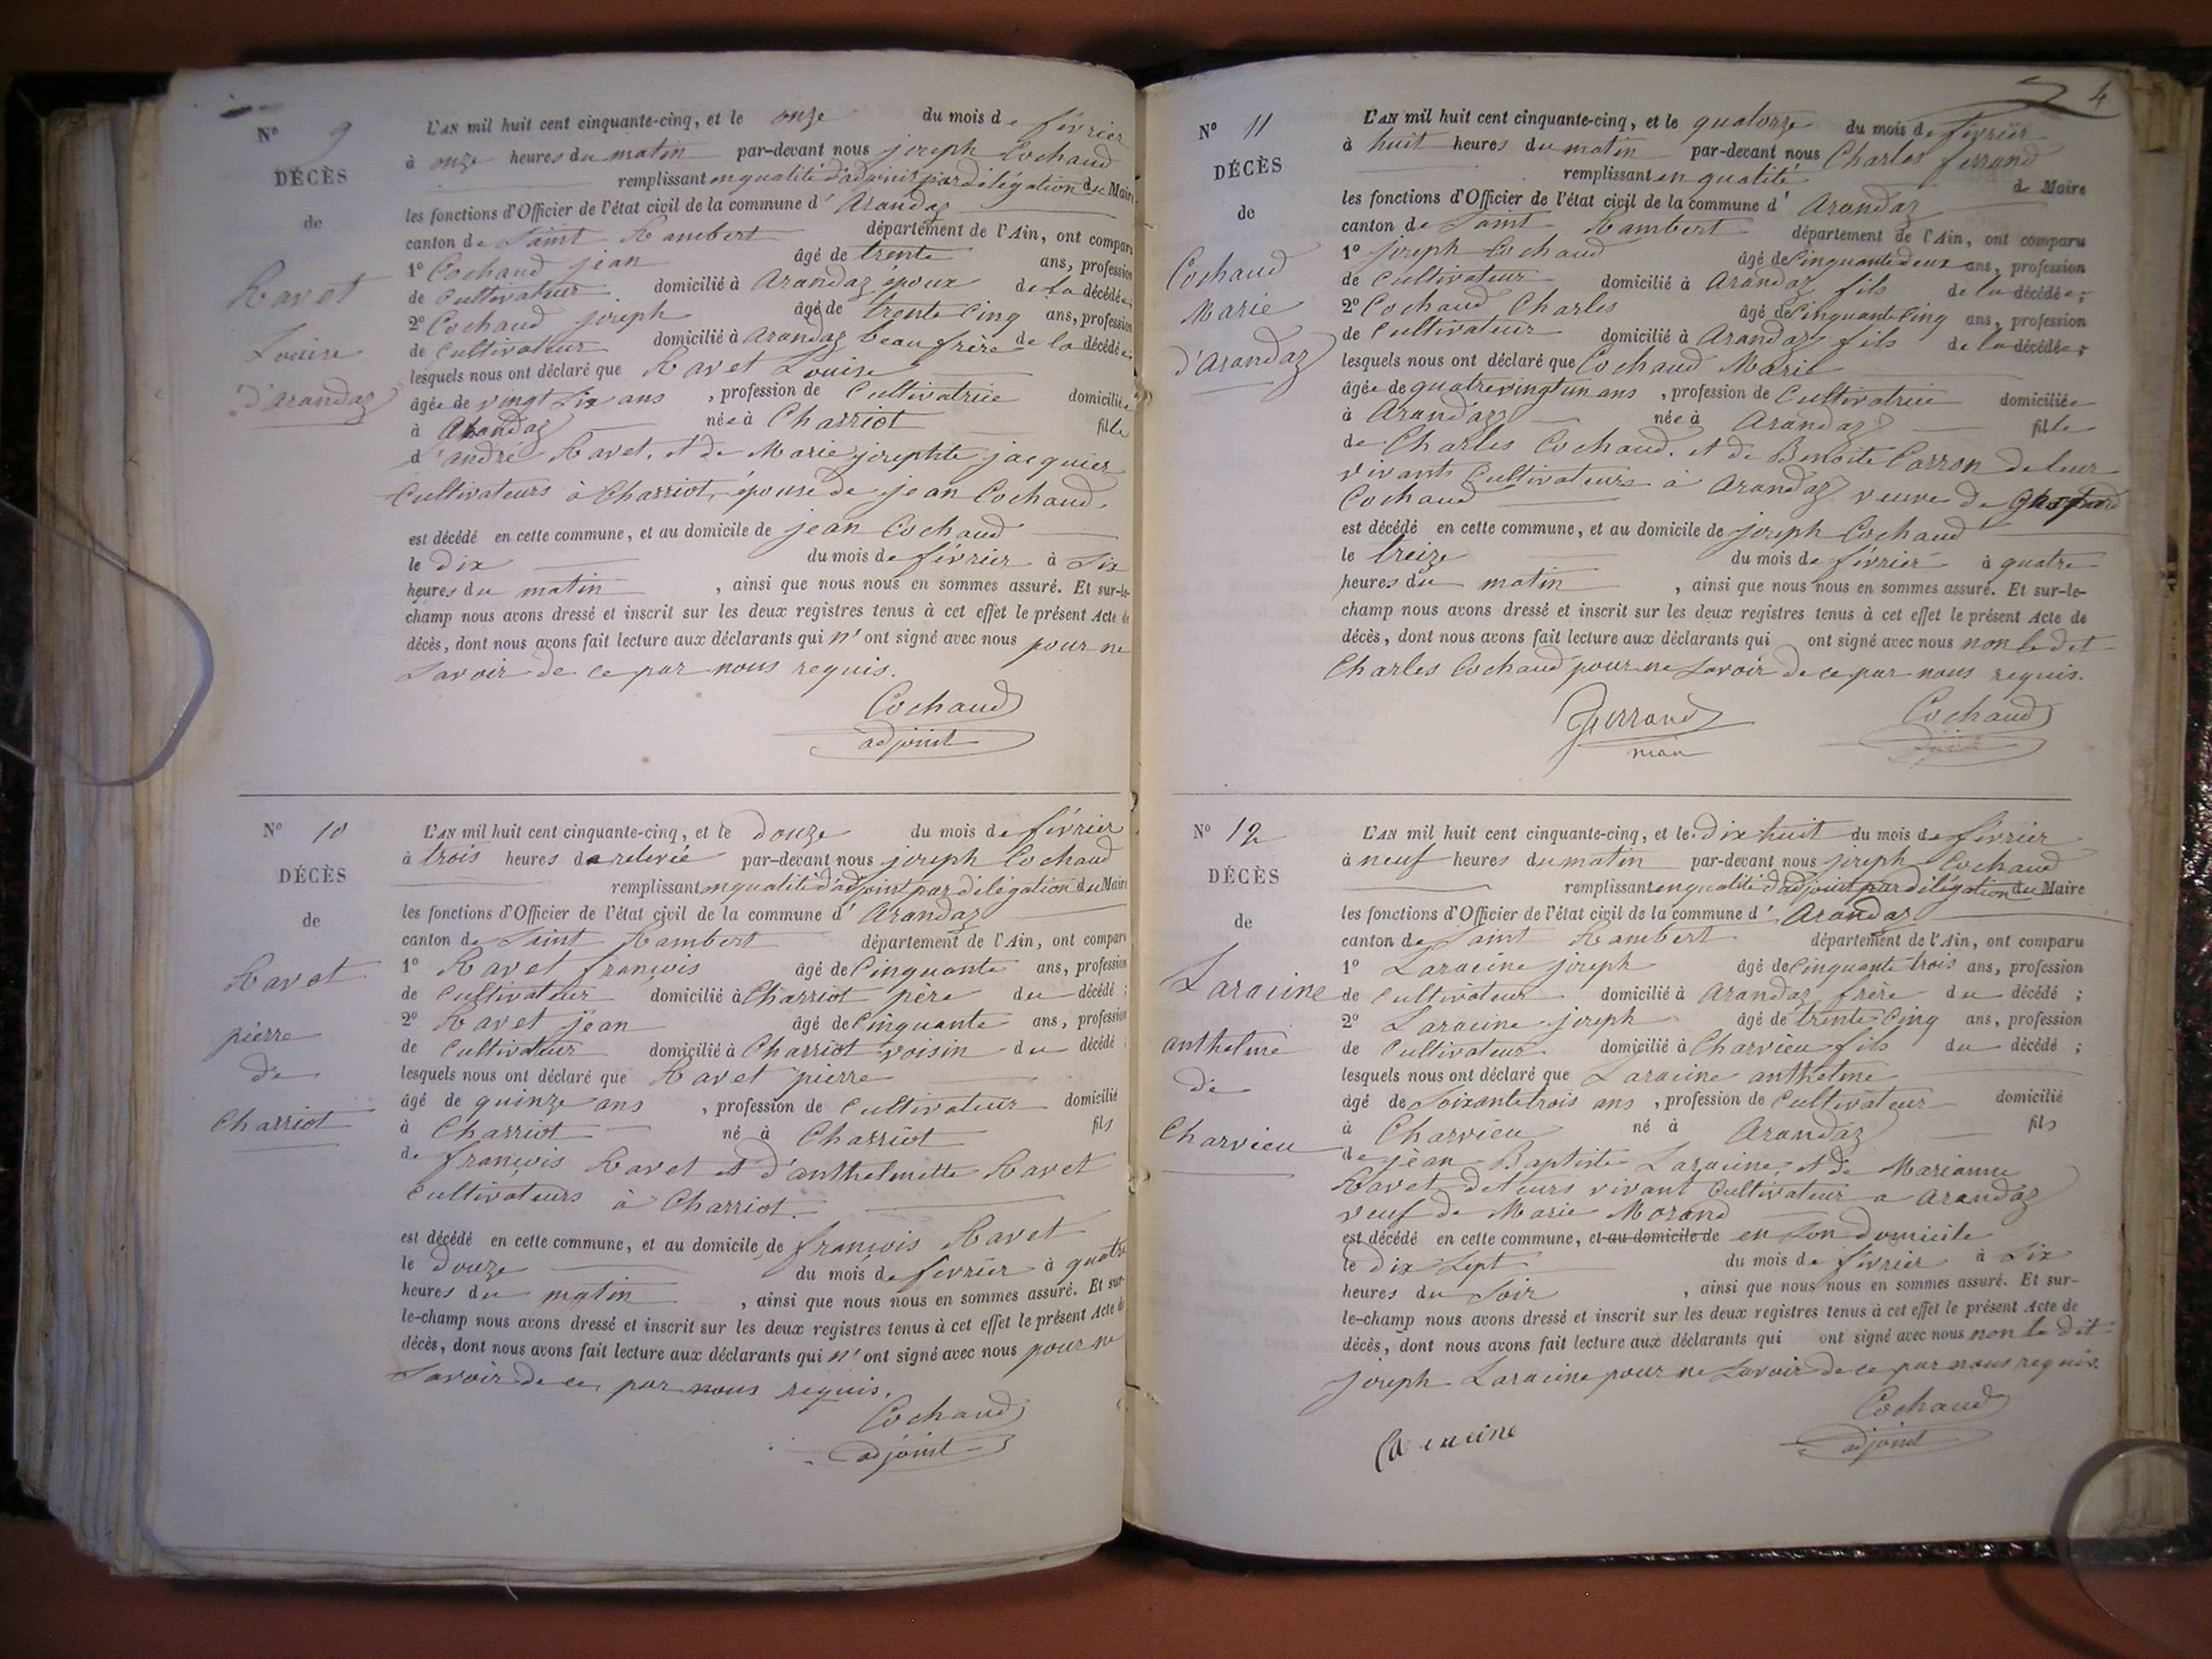 N° 9
DÉCÈS
de
Ravet
Louise
d'arandaz
L'AN mil huit cent cinquante-cinq, et le onze du mois de février
à onze heures du matin par-devant nous joseph Cochaud
remplissant en qualité d'adjoint par délégation du Maire
les fonctions d'Officier de l'état civil de la commune d' Arandaz
canton de Saint Rambert département de l'Ain, ont comparu
1° Cochaud jean âgé de trente ans, profession
de Cultivateur domicilié à Arandaz époux de la décédée;
2° Cochaud joseph âgé de trente Cinq ans, profession
de Cultivateur domicilié à Arandaz beau frère de la décédée;
lesquels nous ont déclaré que Ravet Louise
âgée de vingt Six ans , profession de Cultivatrice domiciliée
à Arandaz née à Charriot fille
d'andré Ravet, et de Marie josephte jacquier
Cultivateurs à Charriot, épouse de jean Cochaud.
est décédé en cette commune, et au domicile de jean Cochaud
le Dix du mois de février à Six
heures du matin , ainsi que nous nous en sommes assuré. Et sur-le-
champ nous avons dressé et inscrit sur les deux registres tenus à cet effet le présent Acte de
décès, dont nous avons fait lecture aux déclarants qui n' ont signé avec nous pour ne
Savoir de ce par nous requis.
Cochaud
adjoint
N° 10
DÉCÈS
de
Ravet
pierre
de
Charriot
L'AN mil huit cent cinquante-cinq, et le Douze du mois de février
à trois heures de relevée par-devant nous joseph Cochaud
remplissant en qualité d'adjoint par délégation du Maire
les fonctions d'Officier de l'état civil de la commune d' Arandaz
canton de Saint Rambert département de l'Ain, ont comparu
1° Ravet françois âgé de Cinquante ans, profession
de Cultivateur domicilié à Charriot père du décédé ;
2° Ravet jean âgé de Cinquante ans, profession
de Cultivateur domicilié à Charriot voisin du décédé ;
lesquels nous ont déclaré que Ravet pierre
âgé de quinze ans , profession de Cultivateur domicilié
à Charriot né à Charriot fils
de françois Ravet et d'anthelmette Ravet
Cultivateurs à Charriot.
est décédé en cette commune, et au domicile de françois Ravet
le Douze du mois de février à quatre
heures du matin , ainsi que nous nous en sommes assuré. Et sur-
le-champ nous avons dressé et inscrit sur les deux registres tenus à cet effet le présent Acte de
décès, dont nous avons fait lecture aux déclarants qui n' ont signé avec nous pour ne
Savoir de ce par nous requis.
Cochaud
adjoint
4
N° 11
DÉCÈS
de
Cochaud
Marie
d'Arandaz
L'AN mil huit cent cinquante-cinq, et le quatorze du mois de février
à huit heures du matin par-devant nous Charles ferrand
remplissant en qualité de Maire
les fonctions d'Officier de l'état civil de la commune d' Arandaz
canton de Saint Rambert département de l'Ain, ont comparu
1° joseph Cochaud âgé de Cinquante deux ans, profession
de Cultivateur domicilié à Arandaz fils de la décédée;
2° Cochaud Charles âgé de Cinquante Cinq ans, profession
de Cultivateur domicilié à Arandaz fils de la décédée;
lesquels nous ont déclaré que Cochaud Marie
âgée de quatre vingt un ans , profession de Cultivatrice domiciliée
à Arandaz née à Arandaz fille
de Charles Cochaud, et de Benoite Carron de leur
vivants Cultivateurs à Arandaz veuve de
Cochaud
est décédé en cette commune, et au domicile de joseph Cochaud
le treize du mois de février à quatre
heures du matin , ainsi que nous nous en sommes assuré. Et sur-le-
champ nous avons dressé et inscrit sur les deux registres tenus à cet effet le présent Acte de
décès, dont nous avons fait lecture aux déclarants qui ont signé avec nous non le dit
Charles Cochaud pour ne Savoir de ce par nous requis.
Ferrand Cochaud
maire
N° 12
DÉCÈS
de
Laracine
anthelme
de
Charvieu
L'AN mil huit cent cinquante-cinq, et le Dix huit du mois de février
à neuf heures du matin par-devant nous joseph Cochaud
remplissant en qualité d'adjoint par délégation du Maire
les fonctions d'Officier de l'état civil de la commune d' Arandaz
canton de Saint Rambert département de l'Ain, ont comparu
1° Laracine joseph âgé de Cinquante trois ans, profession
de Cultivateur domicilié à Arandaz frère du décédé ;
2° Laracine joseph âgé de trente Cinq ans, profession
de Cultivateur domicilié à Charvieu fils du décédé ;
lesquels nous ont déclaré que Laracine anthelme
âgé de Soixante trois ans , profession de Cultivateur domicilié
à Charvieu né à Arandaz fils
de jean Baptiste Laracine, et de Marianne
Ravet de leurs vivant Cultivateur a Arandaz
veuf de Marie Morand
est décédé en cette commune, et au domicile de en Son Domicile
le Dix Sept du mois de février à Six
heures du Soir , ainsi que nous nous en sommes assuré. Et sur-
le-champ nous avons dressé et inscrit sur les deux registres tenus à cet effet le présent Acte de
décès, dont nous avons fait lecture aux déclarants qui ont signé avec nous non le dit
joseph Laracine pour ne Savoir de ce par nous requis.
Cochaud
adjoint
Laracine